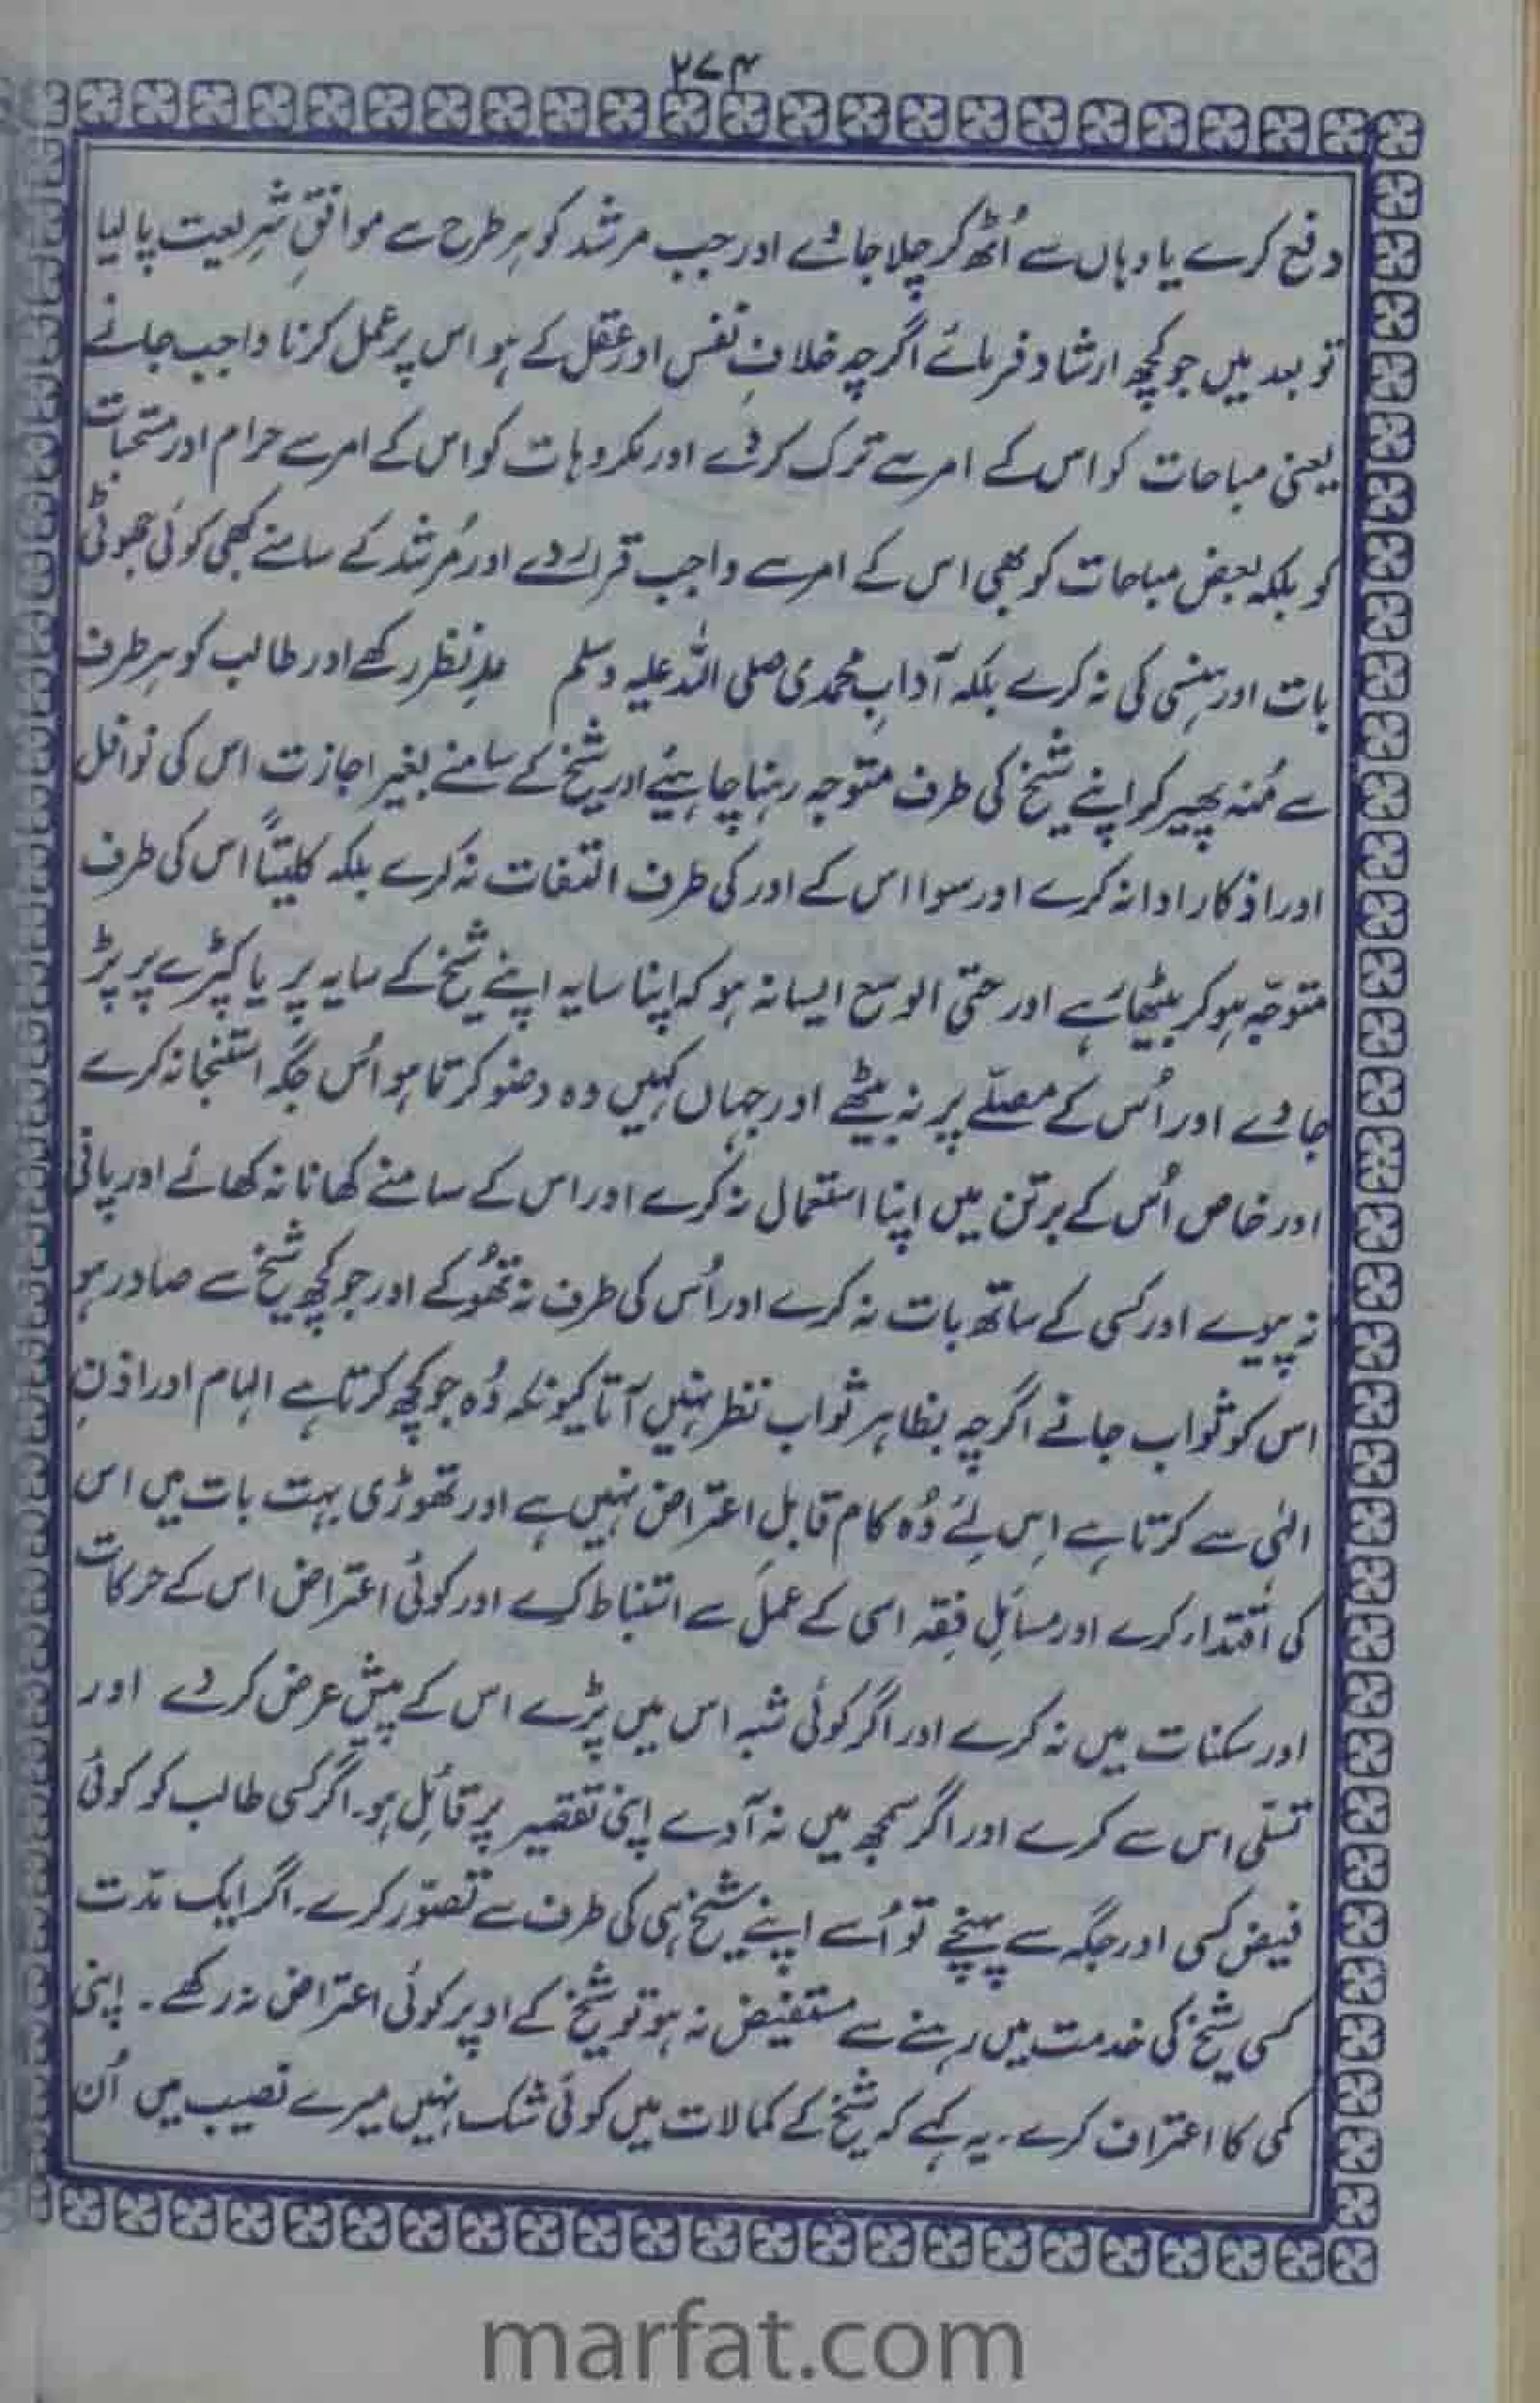 ۲۷۴
دفع کرے یا وہاں سے اُٹھ کر چلا جاوے اور جب مرشد کو ہر طرح سے موافقِ شریعت پا لیا
تو بعد میں جو کچھ ارشاد فرمائے اگرچہ خلافِ نفس اور عقل کے ہو اس پر عمل کرنا واجب جانے
یعنی مباحات کو اس کے امر سے ترک کر دے اور مکروہات کو اس کے امر سے حرام اور مستحبات
کو بلکہ بعض مباحات کو بھی اس کے امر سے واجب قرار دے اور مُرشد کے سامنے کبھی کوئی جھوٹی
بات اور ہنسی کی نہ کرے بلکہ آدابِ محمدی صلی اللہ علیہ وسلم مدِنظر رکھے اور طالب کو ہر طرف
سے مُنہ پھیر کو اپنے شیخ کی طرف متوجہ رہنا چاہیئے اور شیخ کے سامنے بغیر اجازت اس کی نوافل
اور اذکار ادا نہ کرے اور سوا اس کے اور کی طرف التفات نہ کرے بلکہ کلیتاً اس کی طرف
متوجّہ ہو کر بیٹھا رہے اور حتی الوسع ایسا نہ ہو کہ اپنا سایہ اپنے شیخ کے سایہ پر یا کپڑے پر پڑ
جاوے اور اُس کے مصلّے پر نہ بیٹھے اور جہاں کہیں وہ وضو کرتا ہو اُس جگہ استنجا نہ کرے
اور خاص اُس کے برتن میں اپنا استعمال نہ کرے اور اس کے سامنے کھانا نہ کھائے اور پانی
نہ پیوے اور کسی کے ساتھ بات نہ کرے اور اُس کی طرف نہ تھُوکے اور جو کچھ شیخ سے صادر ہو
اس کو ثواب جانے اگرچہ بظاہر ثواب نظر نہیں آتا کیونکہ وُہ جو کچھ کرتا ہے الہام اور اذنِ
الٰہی سے کرتا ہے اِس لئے وُہ کام قابلِ اعتراض نہیں ہے اور تھوڑی بہت بات میں اس
کی اقتداء کرے اور مسائلِ فِقہ اسی کے عمل سے استنباط کرے اور کوئی اعتراض اس کے حرکات
اور سکنات میں نہ کرے اور اگر کوئی شبہ اس میں پڑے اس کے پیش عرض کر دے اور
تسلّی اس سے کرے اور اگر سمجھ میں نہ آوے اپنی تقصیر پر قائل ہو۔ اگر کسی طالب کو کوئی
فیض کسی اور جگہ سے پہنچے تو اُسے اپنے شیخ ہی کی طرف سے تصوّر کرے۔ اگر ایک مدّت
کسی شیخ کی خدمت میں رہنے سے مستفیض نہ ہو تو شیخ کے اوپر کوئی اعتراض نہ رکھے۔ اپنی
کمی کا اعتراف کرے۔ یہ کہے کہ شیخ کے کمالات میں کوئی شک نہیں میرے نصیب میں اُن
marfat.com